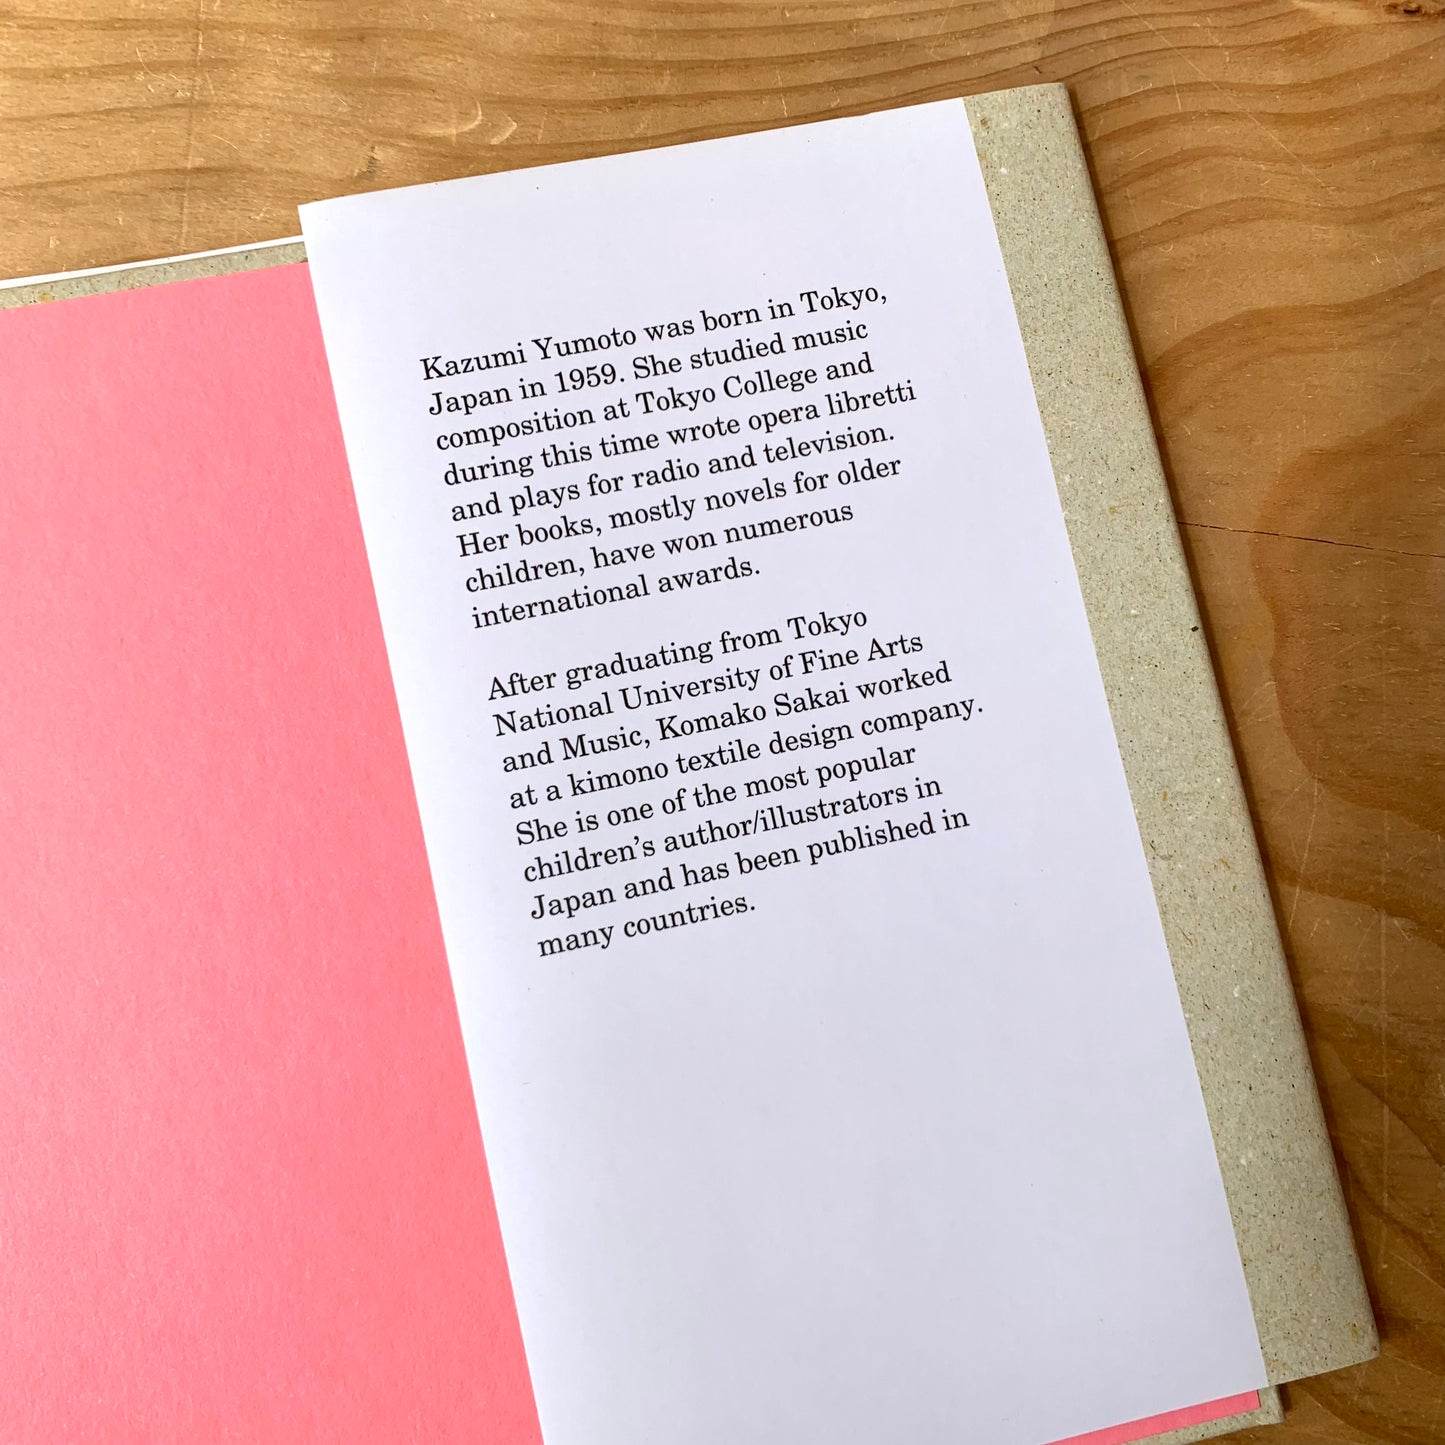 Kazumi Yumoto was born in Tokyo,
Japan in 1959. She studied music
composition at Tokyo College and
during this time wrote opera libretti
and plays for radio and television.
Her books, mostly novels for older
children, have won numerous
international awards.
After graduating from Tokyo
National University of Fine Arts
and Music, Komako Sakai worked
at a kimono textile design company.
She is one of the most popular
children’s author/illustrators in
Japan and has been published in
many countries.